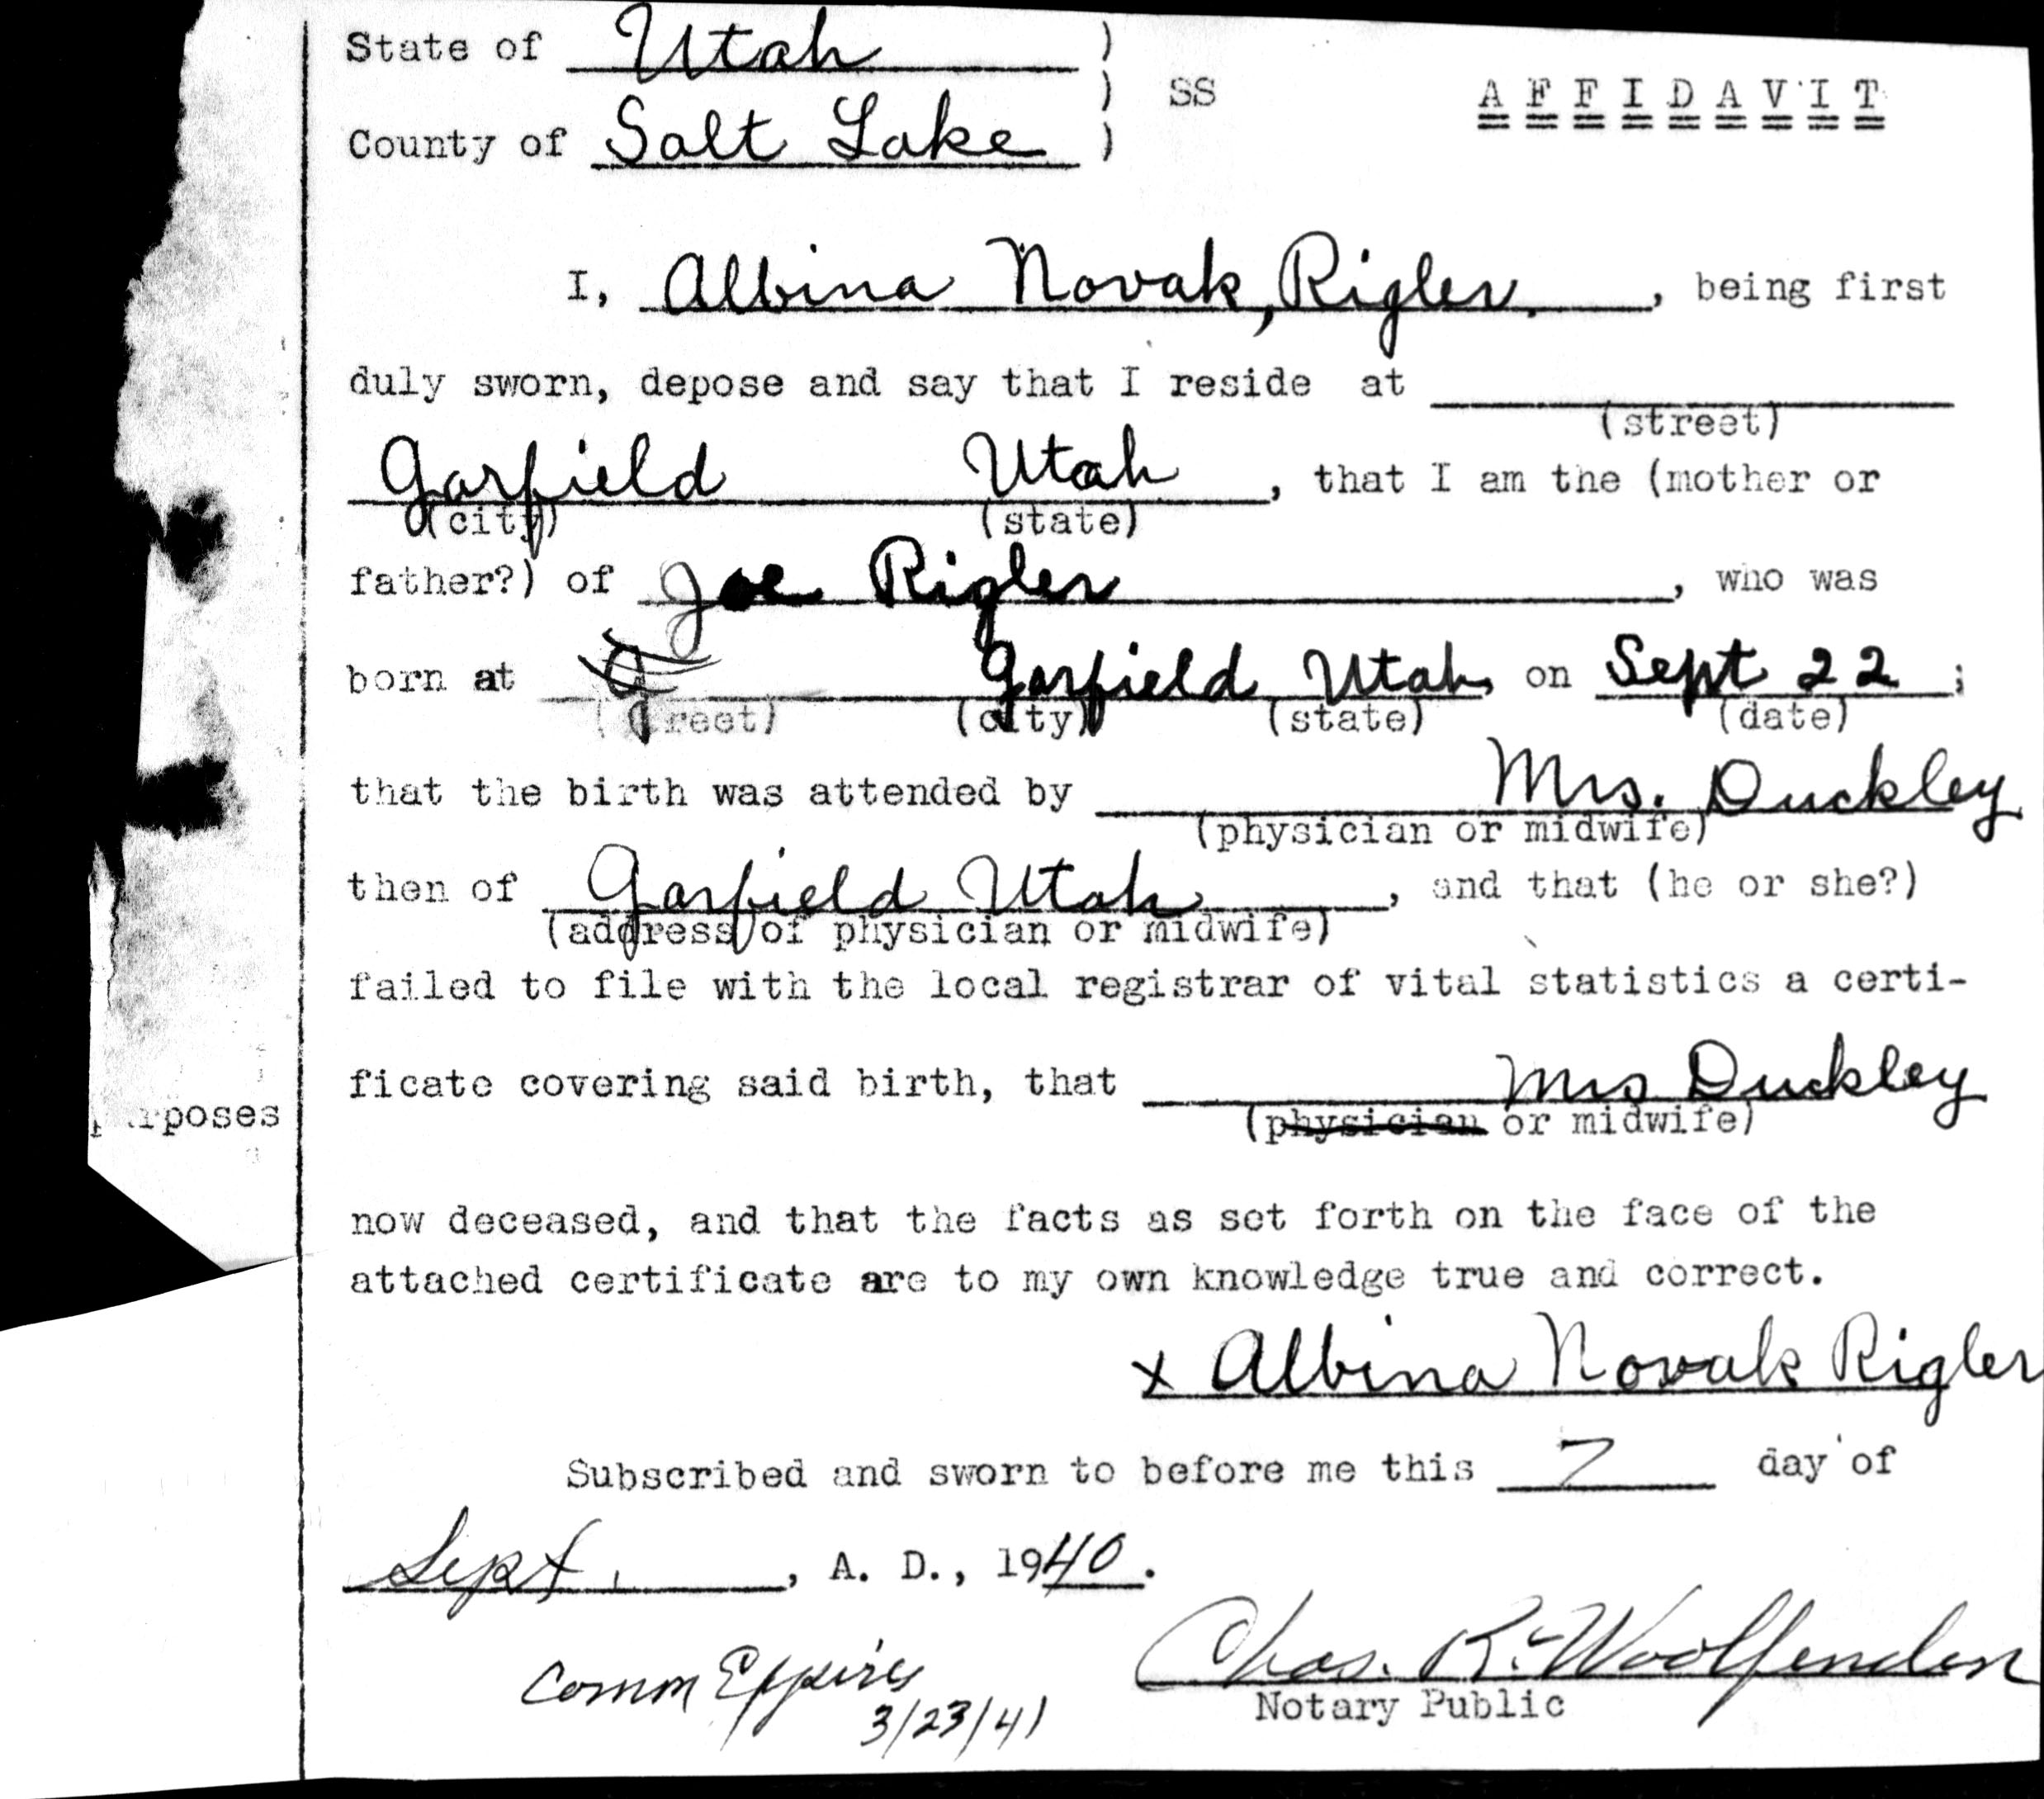 State of Utah )
) SS AFFIDAVIT
County of Salt Lake )
I, Albina Novak, Rigler. , being first
duly sworn, depose and say that I reside at
(street)
Garfield Utah , that I am the (mother or
(city) (state)
father?) of Joe Rigler , who was
born at Garfield Utah, on Sept 22 ;
(city) (state) (date)
that the birth was attended by Mrs. Duckley
(physician or midwife)
then of Garfield Utah , and that (he or she?)
(address of physician or midwife)
failed to file with the local registrar of vital statistics a certi-
ficate covering said birth, that Mrs Duckley
(physician or midwife)
purposes
now deceased, and that the facts as set forth on the face of the
attached certificate are to my own knowledge true and correct.
x Albina Novak Rigler
Subscribed and sworn to before me this 7 day of
Sept. , A. D., 1940.
Comm Expires
3/23/41
Chas. R. Woolfenden
Notary Public